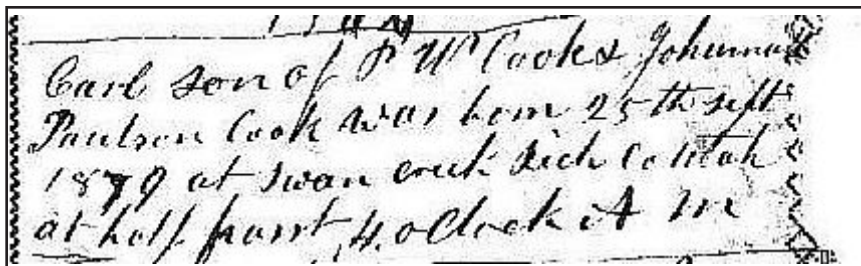 Carl son of P W Cook & Johanna
Paulson Cook was born 25th sept
1879 at swan creek Rich Co Utah
at half past 4 o Clock A M